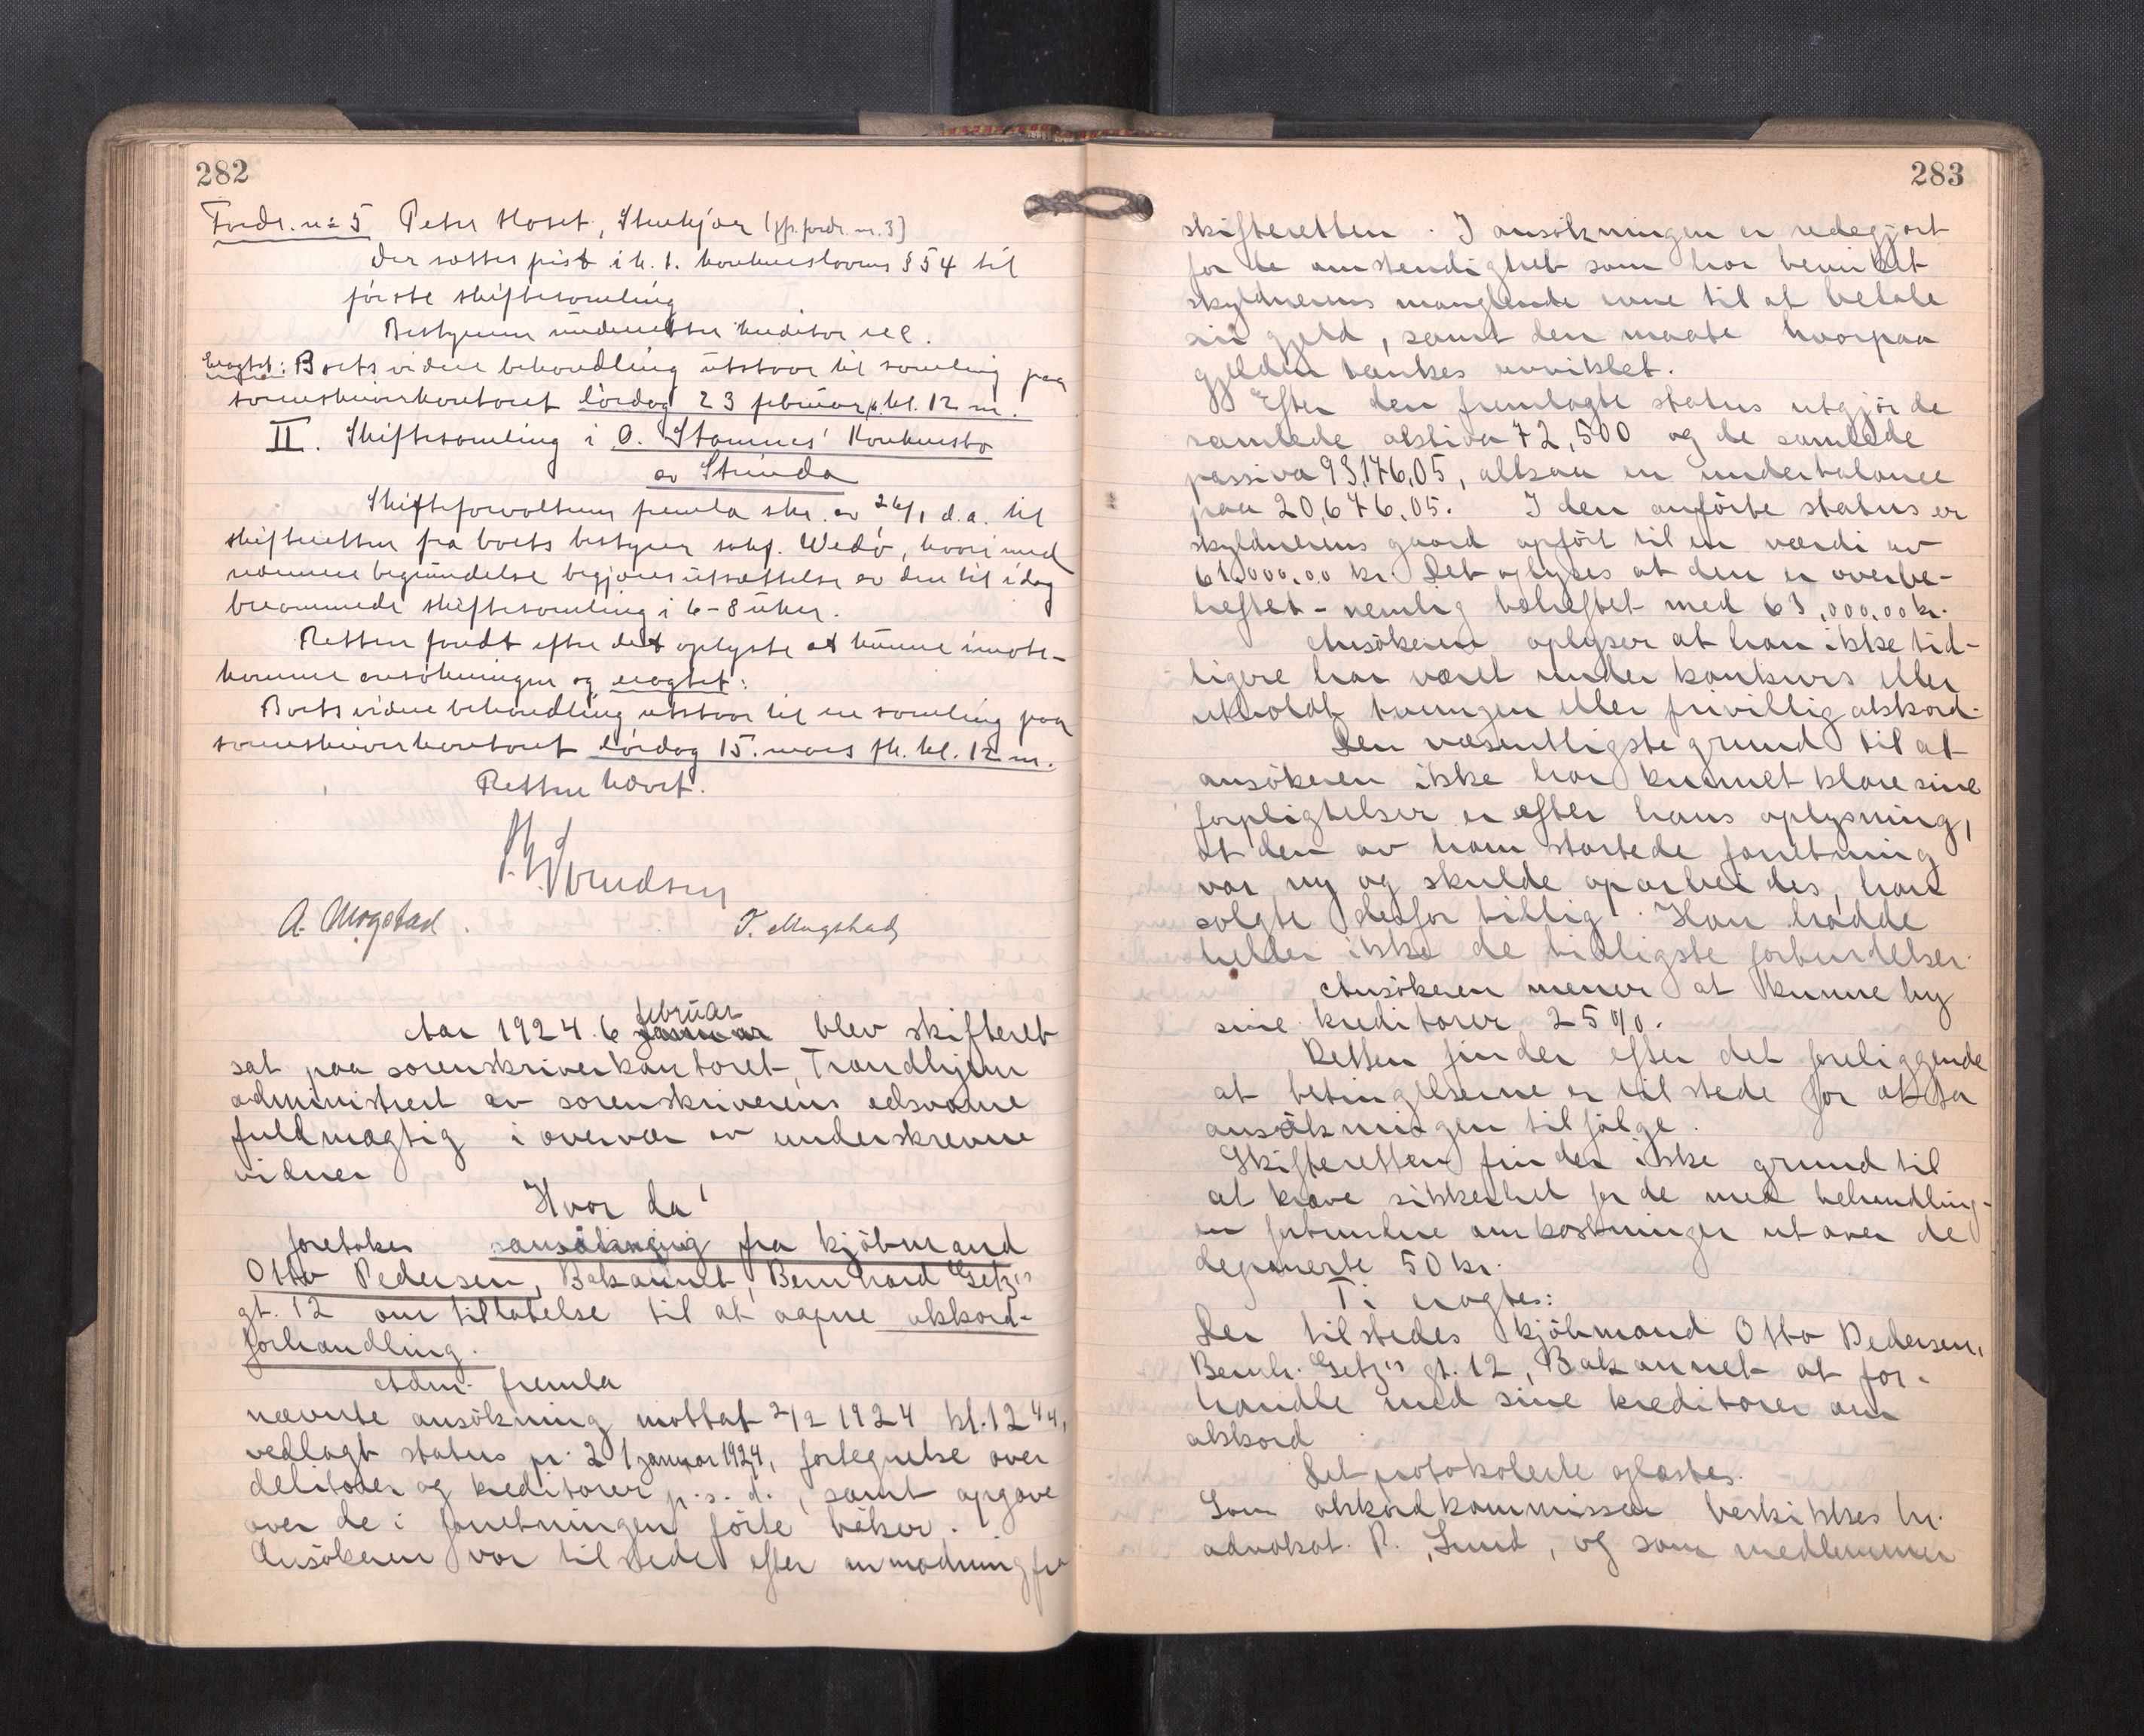 282
Fordr. nr 5 Peter Hoset, Stenkjær (jfr. fordr. nr. 3)
Der sættes frist i h. t. konkurslovens § 54 til
første skiftesamling
Bestyreren underretter kreditor
Eragtet: Boets videre behandling utstaar til samling paa
sorenskriverkontoret lördag 23 februar kl. 12 m.
II. Skiftesamling i O. Stamnes' Konkursbo
av Strinda
Skifteforvalteren fremla skr. av 26/1 d.a. til
skifteretten fra boets bestyrer sakf. Wedö, hvori med
nærmere begrundelse begjæres utsættelse av den til idag
berammede skiftesamling i 6-8 uker.
Retten fandt efter det oplyste at kunne imøte-
komme ansökningen og eragtet:
Boets videre behandling utstaar til en samling paa
sorenskriverkontoret lördag 15. mars fk. kl. 12 m.
Retten hævet.
A. Mogstad. T. Mogstad
februar
Aar 1924. 6 januar blev skifteret
sat paa sorenskriverkontoret, Trondhjem
administrert av sorenskriverens edsvorne
fuldmægtig i overvær av underskrevne
vidner
Hvor da!
foretokes ansökning fra kjöbmand
Otto Pedersen, Bakaunet, Bernhard Getz's
gt. 12 om tillatelse til at aapne akkord-
forhandling.
Adm. fremla
nævnte ansökning mottat 2/2 1924 kl. 12 44,
vedlagt status pr. 21 januar 1924, fortegnelse over
debitorer og kreditorer p. s. d., samt opgave
over de i forretningen förte böker.
Ansökeren var tilstede efter anmodning fra
283
skifteretten. I ansökningen er redegjort
for de omstendighet som har bevirket
skyldnerens manglende evne til at betale
sin gjeld, samt den maate hvorpaa
gjelden tænkes avviklet.
Efter den fremlagte status utgjör de
samlede aktiva 72,500 og de samlede
passiva 93,176,05, altsaa en underbalance
paa 20,676,05. I den anförte status er
skyldnerens gaard opfört til en værdi av
61,000,00 kr. Det oplyses at den er overbe-
heftet - nemlig beheftet med 63,000,00 kr.
Ansökeren oplyser at han ikke tid-
ligere har været under konkurs eller
utholdt tvungen eller frivillig akkord.
Den væsentligste grund til at
ansökeren ikke har kunnet klare sine
forpligtelser er efter hans oplysning,
at den av ham startede forretning
var ny og skulde oparbeides, han
solgte derfor billig. Han hadde
heller ikke de billigste forbindelser.
Ansökeren mener at kunne by
sine kreditorer 25 %.
Retten finder efter det foreliggende
at betingelserne er tilstede for at ta
ansökningen tilfölge.
Skifteretten finder ikke grund til
at kræve sikkerhet for de med behandling-
en forbundne omkostninger utover de
deponerte 50 kr.
Ti eragtes:
Der tilstedes kjöbmand Otto Pedersen,
Bernh. Getz's gt. 12, Bakaunet at for-
handle med sine kreditorer om
akkord.
Det protokolerte oplæstes.
Som akkordkommissær beskikkes hr.
advokat R. Lund, og som medlemmer